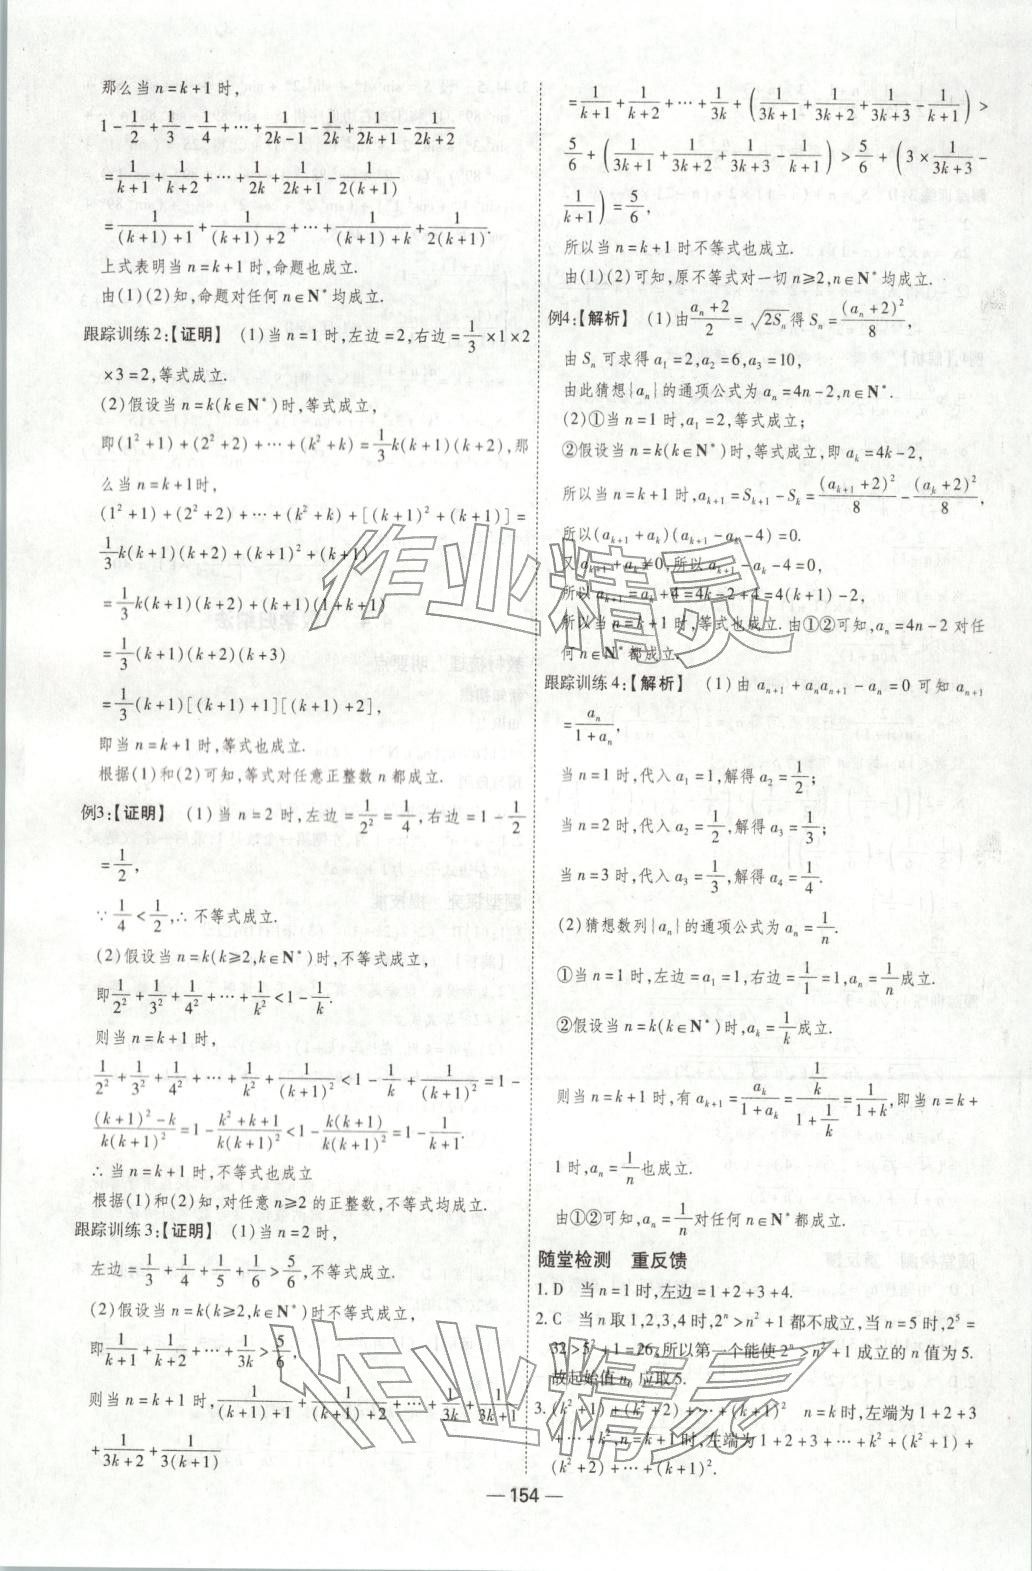 那么当 n=k+1 时,
1-1/2+1/3-1/4+…+1/(2k-1)-1/2k+1/(2k+1)-1/(2k+2)
=1/(k+1)+1/(k+2)+…+1/2k+1/(2k+1)-1/2(k+1)
=1/((k+1)+1)+1/((k+1)+2)+…+1/((k+1)+k)+1/2(k+1).
上式表明当 n=k+1 时,命题也成立.
由(1)(2)知,命题对任何 n∈N*均成立.
跟踪训练2:【证明】 (1)当 n=1 时,左边=2,右边=1/3×1×2
×3=2,等式成立.
(2)假设当 n=k(k∈N*)时,等式成立,
即(1²+1)+(2²+2)+…+(k²+k)=1/3k(k+1)(k+2),那
么当 n=k+1时,
(1²+1)+(2²+2)+…+(k²+k)+[(k+1)²+(k+1)]=
1/3k(k+1)(k+2)+(k+1)²+(k+1)
=1/3k(k+1)(k+2)+(k+1)(1+k+1)
=1/3(k+1)(k+2)(k+3)
=1/3(k+1)[(k+1)+1][(k+1)+2],
即当 n=k+1 时,等式也成立.
根据(1)和(2)可知,等式对任意正整数 n 都成立.
例3:【证明】 (1)当 n=2 时,左边=1/2²=1/4,右边=1-1/2
=1/2,
∵1/4<1/2,∴不等式成立.
(2)假设当 n=k(k≥2,k∈N*)时,不等式成立,
即1/2²+1/3²+1/4²+…+1/k²<1-1/k.
则当 n=k+1 时,
1/2²+1/3²+1/4²+…+1/k²+1/(k+1)²<1-1/k+1/(k+1)²=1-
((k+1)²-k)/(k(k+1)²)=1-(k²+k+1)/(k(k+1)²)<1-k(k+1)/(k(k+1)²)=1-1/(k+1).
∴当 n=k+1 时,不等式也成立
根据(1)和(2)知,对任意 n≥2 的正整数,不等式均成立.
跟踪训练3:【证明】 (1)当 n=2 时,
左边=1/3+1/4+1/5+1/6>5/6,不等式成立.
(2)假设当 n=k(k≥2,k∈N*)时不等式成立,
即1/(k+1)+1/(k+2)+…+1/3k>5/6,
则当 n=k+1 时,1/((k+1)+1)+1/((k+1)+2)+…+1/3k+1/(3k+1)
+1/(3k+2)+1/3(k+1)
=1/(k+1)+1/(k+2)+…+1/3k+(1/(3k+1)+1/(3k+2)+1/(3k+3)-1/(k+1))>
5/6+(1/(3k+1)+1/(3k+2)+1/(3k+3)-1/(k+1))>5/6+(3×1/(3k+3)-
1/(k+1))=5/6,
所以当 n=k+1 时不等式也成立.
由(1)(2)可知,原不等式对一切 n≥2,n∈N*均成立.
例4:【解析】 (1)由(aₙ+2)/2=√(2Sₙ)得 Sₙ=(aₙ+2)²/8,
由 Sₙ 可求得 a₁=2,a₂=6,a₃=10,
由此猜想{aₙ}的通项公式为 aₙ=4n-2,n∈N*.
(2)①当 n=1 时,a₁=2,等式成立;
②假设当 n=k(k∈N*)时,等式成立,即 aₖ=4k-2,
所以当 n=k+1 时,aₖ₊₁=Sₖ₊₁-Sₖ=(aₖ₊₁+2)²/8-(aₖ+2)²/8,
所以(aₖ₊₁+aₖ)(aₖ₊₁-aₖ-4)=0.
又 aₖ₊₁+aₖ≠0,所以 aₖ₊₁-aₖ-4=0,
所以 aₖ₊₁=aₖ+4=4k-2+4=4(k+1)-2,
所以当 n=k+1 时,等式也成立.由①②可知,aₙ=4n-2 对任
何 n∈N*都成立.
跟踪训练4:【解析】 (1)由 aₙ₊₁+aₙaₙ₊₁-aₙ=0 可知 aₙ₊₁
=aₙ/(1+aₙ),
当 n=1 时,代入 a₁=1,解得 a₂=1/2;
当 n=2 时,代入 a₂=1/2,解得 a₃=1/3;
当 n=3 时,代入 a₃=1/3,解得 a₄=1/4.
(2)猜想数列{aₙ}的通项公式为 aₙ=1/n.
①当 n=1 时,左边=a₁=1,右边=1/1=1,aₙ=1/n成立.
②假设当 n=k(k∈N*)时,aₖ=1/k成立.
则当 n=k+1 时,有 aₖ₊₁=aₖ/(1+aₖ)=(1/k)/(1+1/k)=1/(1+k),即当 n=k+
1时,aₙ=1/n也成立.
由①②可知,aₙ=1/n对任何 n∈N*都成立.
随堂检测 重反馈
1. D 当 n=1 时,左边=1+2+3+4.
2. C 当 n 取 1,2,3,4 时,2ⁿ>n²+1 都不成立,当 n=5 时,2⁵=
32>5²+1=26,所以第一个能使 2ⁿ>n²+1 成立的 n 值为 5.
故起始值 n₀ 应取5.
3. (k²+1)+(k²+2)+…+(k+1)² n=k时,左端为1+2+3
+…+k²,n=k+1时,左端为1+2+3+…+k²+(k²+1)+
(k²+2)+…+(k+1)².
—154—
作业精灵
作业精灵